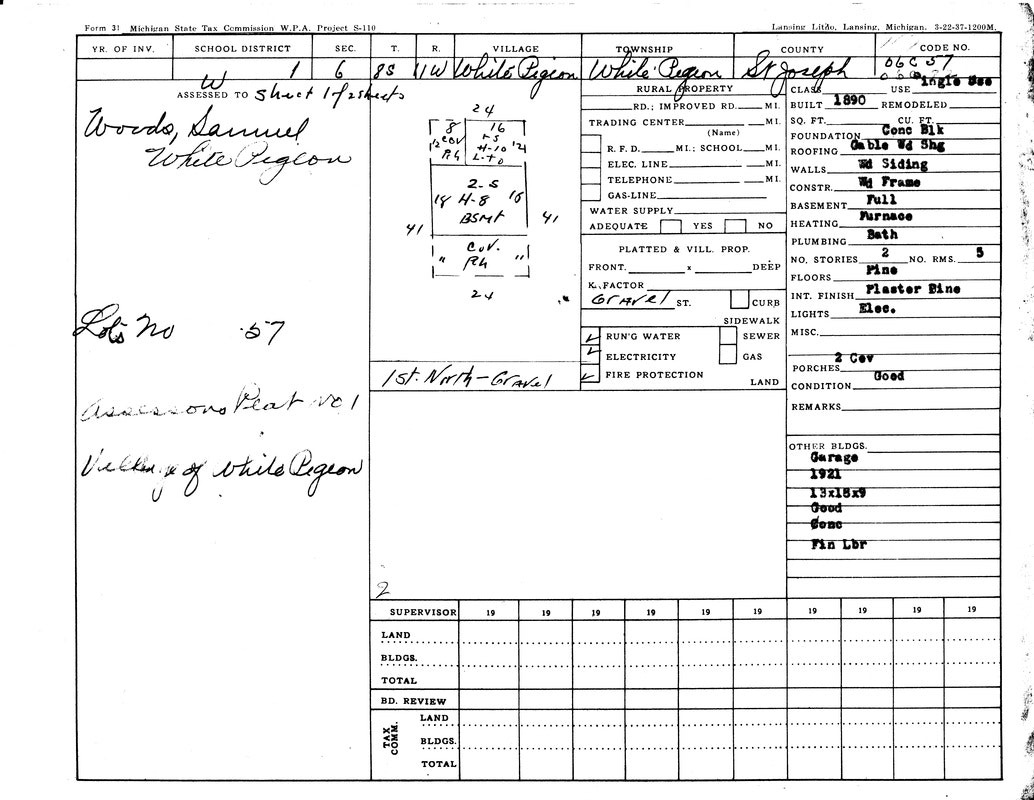 Form 31 Michigan State Tax Commission W.P.A. Project S-110
Lansing Litho. Lansing, Michigan. 3-22-37-1200M.
YR. OF INV. SCHOOL DISTRICT SEC. T. R. VILLAGE TOWNSHIP COUNTY CODE NO.
W 1 6 8S 11W White Pigeon White Pigeon St Joseph 06C 57
ASSESSED TO Sheet 1 of 2 sheets
Woods, Samuel
White Pigeon
Lots No 57
Assessors Plat No 1
Village of White Pigeon
24
8 16
12 COV 1-S 12
Ph H-10
L-to
2-S
18 H-8 18
BSMT
41 41
COV.
" Ph "
24
1st. North - Gravel
2
RURAL PROPERTY
RD.; IMPROVED RD. MI.
TRADING CENTER MI.
(Name)
R.F.D. MI.; SCHOOL MI.
ELEC. LINE MI.
TELEPHONE MI.
GAS-LINE
WATER SUPPLY
ADEQUATE YES NO
PLATTED & VILL. PROP.
FRONT. x DEEP
K. FACTOR
Gravel ST. CURB
SIDEWALK
RUN'G WATER SEWER
ELECTRICITY GAS
FIRE PROTECTION
LAND
CLASS USE Single Res
BUILT 1890 REMODELED
SQ. FT. CU. FT.
FOUNDATION Conc Blk
ROOFING Gable Wd Shg
WALLS Wd Siding
CONSTR. Wd Frame
BASEMENT Full
HEATING Furnace
PLUMBING Bath
NO. STORIES 2 NO. RMS. 5
FLOORS Pine
INT. FINISH Plaster Pine
LIGHTS Elec.
MISC.
PORCHES 2 Cov
CONDITION Good
REMARKS
OTHER BLDGS.
Garage
1921
13x18x9
Good
Conc
Fin Lbr
SUPERVISOR 19 19 19 19 19 19 19 19 19 19
LAND
BLDGS.
TOTAL
BD. REVIEW
TAX COMM.
LAND
BLDGS.
TOTAL